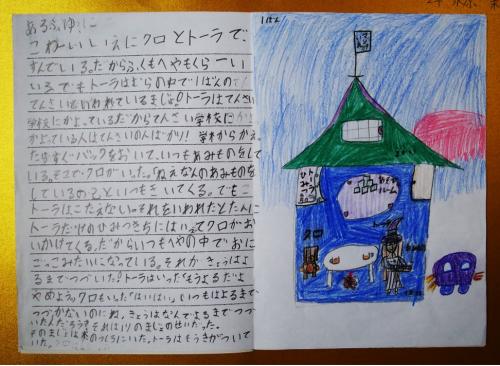 あるふゆに
こわーいいえにクロとトーラで、
すんでいる。だからふくもへやもくらーい
いろでもトーラはむらの中で1ばんの
てんさいといわれているまじょ!トーラはてんさい
学校にかよっているだからてんさい学校に
かよっている人はてんさいの人ばかり!学木交からかえっ
たらすぐバックをおいて、いつもあみものをして
いる。そこでクロがいった。ねえなんのあみものを
しているの?といつもきいてくる。でもこ
トーラはこたえない。それをいわれたとたんに
トーラだけのひみつきちにはいってクロがお
いかけてくる。だからいつもへやの中でおに
ごっこみたいになっている。それがきょうはよ
るまでつづいた!トーラはいった「もうよるだよ
やめよう。クロもいった「はいはい。いつもはよるまで
つづかないのにね、きょうはなんでよるまでつづ
いたんだろう?それは1りのまじょのせいだった。
そのまじょは木のうらにいた。トーラはもうきがついて
いた。
1ばん
ひみつ
ルーム
クロ
トーラ